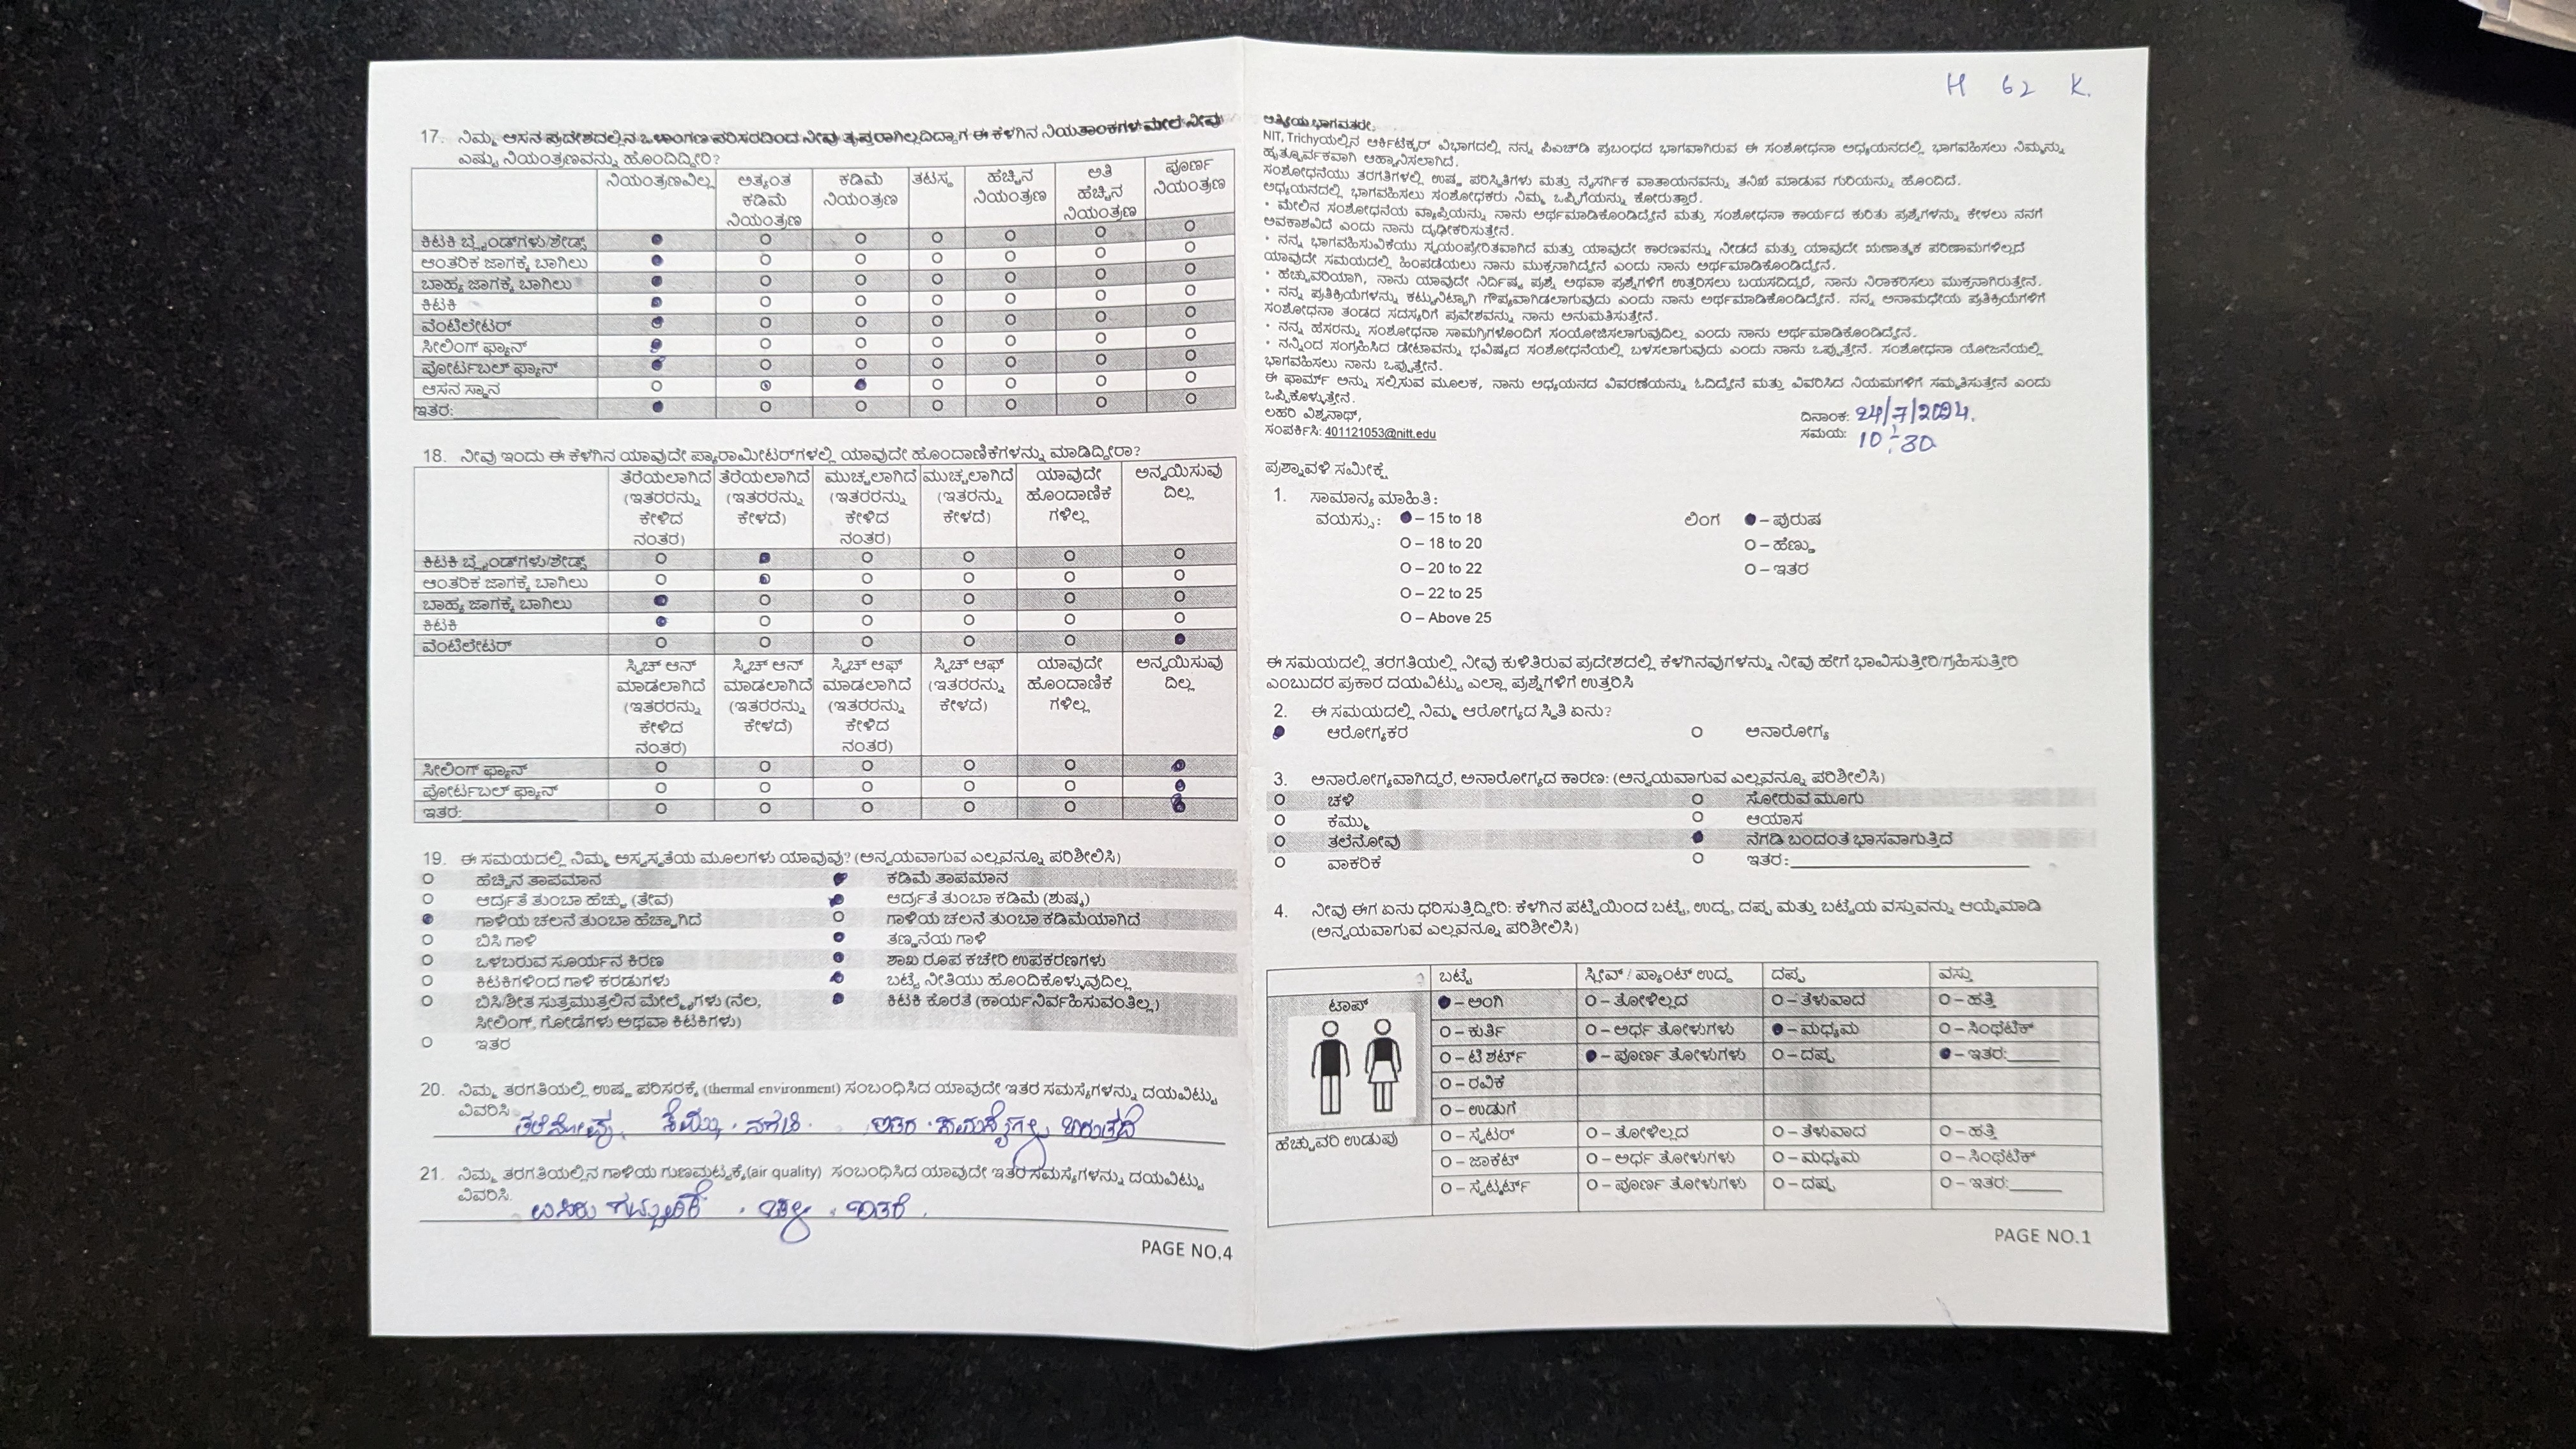 H 62 K.
17. ನಿಮ್ಮ ಆಸನ ಪ್ರದೇಶದಲ್ಲಿನ ಒಳಾಂಗಣ ಪರಿಸರದಿಂದ ನೀವು ತೃಪ್ತರಾಗಿಲ್ಲದಿದ್ದಾಗ ಈ ಕೆಳಗಿನ ನಿಯತಾಂಕಗಳ ಮೇಲೆ ನೀವು
ಎಷ್ಟು ನಿಯಂತ್ರಣವನ್ನು ಹೊಂದಿದ್ದೀರಿ?
ನಿಯಂತ್ರಣವಿಲ್ಲ ಅತ್ಯಂತ ಕಡಿಮೆ ನಿಯಂತ್ರಣ ಕಡಿಮೆ ನಿಯಂತ್ರಣ ತಟಸ್ಥ ಹೆಚ್ಚಿನ ನಿಯಂತ್ರಣ ಅತಿ ಹೆಚ್ಚಿನ ನಿಯಂತ್ರಣ ಪೂರ್ಣ ನಿಯಂತ್ರಣ
ಕಿಟಕಿ ಬ್ಲೈಂಡ್‌ಗಳು/ಶೇಡ್ಸ್
ಆಂತರಿಕ ಜಾಗಕ್ಕೆ ಬಾಗಿಲು
ಬಾಹ್ಯ ಜಾಗಕ್ಕೆ ಬಾಗಿಲು
ಕಿಟಕಿ
ವೆಂಟಿಲೇಟರ್
ಸೀಲಿಂಗ್ ಫ್ಯಾನ್
ಪೋರ್ಟಬಲ್ ಫ್ಯಾನ್
ಆಸನ ಸ್ಥಾನ
ಇತರ:
18. ನೀವು ಇಂದು ಈ ಕೆಳಗಿನ ಯಾವುದೇ ಪ್ಯಾರಾಮೀಟರ್‌ಗಳಲ್ಲಿ ಯಾವುದೇ ಹೊಂದಾಣಿಕೆಗಳನ್ನು ಮಾಡಿದ್ದೀರಾ?
ತೆರೆಯಲಾಗಿದೆ (ಇತರರನ್ನು ಕೇಳಿದ ನಂತರ) ತೆರೆಯಲಾಗಿದೆ (ಇತರರನ್ನು ಕೇಳದೆ) ಮುಚ್ಚಲಾಗಿದೆ (ಇತರರನ್ನು ಕೇಳಿದ ನಂತರ) ಮುಚ್ಚಲಾಗಿದೆ (ಇತರರನ್ನು ಕೇಳದೆ) ಯಾವುದೇ ಹೊಂದಾಣಿಕೆ ಗಳಿಲ್ಲ ಅನ್ವಯಿಸುವು ದಿಲ್ಲ
ಕಿಟಕಿ ಬ್ಲೈಂಡ್‌ಗಳು/ಶೇಡ್ಸ್
ಆಂತರಿಕ ಜಾಗಕ್ಕೆ ಬಾಗಿಲು
ಬಾಹ್ಯ ಜಾಗಕ್ಕೆ ಬಾಗಿಲು
ಕಿಟಕಿ
ವೆಂಟಿಲೇಟರ್
ಸ್ವಿಚ್ ಆನ್ ಮಾಡಲಾಗಿದೆ (ಇತರರನ್ನು ಕೇಳಿದ ನಂತರ) ಸ್ವಿಚ್ ಆನ್ ಮಾಡಲಾಗಿದೆ (ಇತರರನ್ನು ಕೇಳದೆ) ಸ್ವಿಚ್ ಆಫ್ ಮಾಡಲಾಗಿದೆ (ಇತರರನ್ನು ಕೇಳಿದ ನಂತರ) ಸ್ವಿಚ್ ಆಫ್ (ಇತರರನ್ನು ಕೇಳದೆ) ಯಾವುದೇ ಹೊಂದಾಣಿಕೆ ಗಳಿಲ್ಲ ಅನ್ವಯಿಸುವು ದಿಲ್ಲ
ಸೀಲಿಂಗ್ ಫ್ಯಾನ್
ಪೋರ್ಟಬಲ್ ಫ್ಯಾನ್
ಇತರ:
19. ಈ ಸಮಯದಲ್ಲಿ ನಿಮ್ಮ ಅಸ್ವಸ್ಥತೆಯ ಮೂಲಗಳು ಯಾವುವು? (ಅನ್ವಯವಾಗುವ ಎಲ್ಲವನ್ನೂ ಪರಿಶೀಲಿಸಿ)
ಹೆಚ್ಚಿನ ತಾಪಮಾನ ಕಡಿಮೆ ತಾಪಮಾನ
ಆರ್ದ್ರತೆ ತುಂಬಾ ಹೆಚ್ಚು (ತೇವ) ಆರ್ದ್ರತೆ ತುಂಬಾ ಕಡಿಮೆ (ಶುಷ್ಕ)
ಗಾಳಿಯ ಚಲನೆ ತುಂಬಾ ಹೆಚ್ಚಾಗಿದೆ ಗಾಳಿಯ ಚಲನೆ ತುಂಬಾ ಕಡಿಮೆಯಾಗಿದೆ
ಬಿಸಿ ಗಾಳಿ ತಣ್ಣನೆಯ ಗಾಳಿ
ಒಳಬರುವ ಸೂರ್ಯನ ಕಿರಣ ಶಾಖ ರೂಪ ಕಚೇರಿ ಉಪಕರಣಗಳು
ಕಿಟಕಿಗಳಿಂದ ಗಾಳಿ ಕರಡುಗಳು ಬಟ್ಟೆ ನೀತಿಯು ಹೊಂದಿಕೊಳ್ಳುವುದಿಲ್ಲ
ಬಿಸಿ/ಶೀತ ಸುತ್ತಮುತ್ತಲಿನ ಮೇಲ್ಮೈಗಳು (ನೆಲ, ಕಿಟಕಿ ಕೊರತೆ (ಕಾರ್ಯನಿರ್ವಹಿಸುವಂತಿಲ್ಲ)
ಸೀಲಿಂಗ್, ಗೋಡೆಗಳು ಅಥವಾ ಕಿಟಕಿಗಳು)
ಇತರ
20. ನಿಮ್ಮ ತರಗತಿಯಲ್ಲಿ ಉಷ್ಣ ಪರಿಸರಕ್ಕೆ (thermal environment) ಸಂಬಂಧಿಸಿದ ಯಾವುದೇ ಇತರ ಸಮಸ್ಯೆಗಳನ್ನು ದಯವಿಟ್ಟು
ವಿವರಿಸಿ.
ತಲೆನೋವು, ಕೆಮ್ಮು, ನೆಗಡಿ
21. ನಿಮ್ಮ ತರಗತಿಯಲ್ಲಿನ ಗಾಳಿಯ ಗುಣಮಟ್ಟಕ್ಕೆ(air quality) ಸಂಬಂಧಿಸಿದ ಯಾವುದೇ ಇತರ ಸಮಸ್ಯೆಗಳನ್ನು ದಯವಿಟ್ಟು
ವಿವರಿಸಿ.
PAGE NO.4
ಆತ್ಮೀಯ ಭಾಗವತರೇ,
NIT, Trichyಯಲ್ಲಿನ ಆರ್ಕಿಟೆಕ್ಚರ್ ವಿಭಾಗದಲ್ಲಿ ನನ್ನ ಪಿಎಚ್‌ಡಿ ಪ್ರಬಂಧದ ಭಾಗವಾಗಿರುವ ಈ ಸಂಶೋಧನಾ ಅಧ್ಯಯನದಲ್ಲಿ ಭಾಗವಹಿಸಲು ನಿಮ್ಮನ್ನು
ಹೃತ್ಪೂರ್ವಕವಾಗಿ ಆಹ್ವಾನಿಸಲಾಗಿದೆ.
ಸಂಶೋಧನೆಯು ತರಗತಿಗಳಲ್ಲಿ ಉಷ್ಣ ಪರಿಸ್ಥಿತಿಗಳು ಮತ್ತು ನೈಸರ್ಗಿಕ ವಾತಾಯನವನ್ನು ತನಿಖೆ ಮಾಡುವ ಗುರಿಯನ್ನು ಹೊಂದಿದೆ.
ಅಧ್ಯಯನದಲ್ಲಿ ಭಾಗವಹಿಸಲು ಸಂಶೋಧಕರು ನಿಮ್ಮ ಒಪ್ಪಿಗೆಯನ್ನು ಕೋರುತ್ತಾರೆ.
• ಮೇಲಿನ ಸಂಶೋಧನೆಯ ವ್ಯಾಪ್ತಿಯನ್ನು ನಾನು ಅರ್ಥಮಾಡಿಕೊಂಡಿದ್ದೇನೆ ಮತ್ತು ಸಂಶೋಧನಾ ಕಾರ್ಯದ ಕುರಿತು ಪ್ರಶ್ನೆಗಳನ್ನು ಕೇಳಲು ನನಗೆ
ಅವಕಾಶವಿದೆ ಎಂದು ನಾನು ದೃಢೀಕರಿಸುತ್ತೇನೆ.
• ನನ್ನ ಭಾಗವಹಿಸುವಿಕೆಯು ಸ್ವಯಂಪ್ರೇರಿತವಾಗಿದೆ ಮತ್ತು ಯಾವುದೇ ಕಾರಣವನ್ನು ನೀಡದೆ ಮತ್ತು ಯಾವುದೇ ಋಣಾತ್ಮಕ ಪರಿಣಾಮಗಳಿಲ್ಲದೆ
ಯಾವುದೇ ಸಮಯದಲ್ಲಿ ಹಿಂಪಡೆಯಲು ನಾನು ಮುಕ್ತನಾಗಿದ್ದೇನೆ ಎಂದು ನಾನು ಅರ್ಥಮಾಡಿಕೊಂಡಿದ್ದೇನೆ.
• ಹೆಚ್ಚುವರಿಯಾಗಿ, ನಾನು ಯಾವುದೇ ನಿರ್ದಿಷ್ಟ ಪ್ರಶ್ನೆ ಅಥವಾ ಪ್ರಶ್ನೆಗಳಿಗೆ ಉತ್ತರಿಸಲು ಬಯಸದಿದ್ದರೆ, ನಾನು ನಿರಾಕರಿಸಲು ಮುಕ್ತನಾಗಿರುತ್ತೇನೆ.
• ನನ್ನ ಪ್ರತಿಕ್ರಿಯೆಗಳನ್ನು ಕಟ್ಟುನಿಟ್ಟಾಗಿ ಗೌಪ್ಯವಾಗಿಡಲಾಗುವುದು ಎಂದು ನಾನು ಅರ್ಥಮಾಡಿಕೊಂಡಿದ್ದೇನೆ. ನನ್ನ ಅನಾಮಧೇಯ ಪ್ರತಿಕ್ರಿಯೆಗಳಿಗೆ
ಸಂಶೋಧನಾ ತಂಡದ ಸದಸ್ಯರಿಗೆ ಪ್ರವೇಶವನ್ನು ನಾನು ಅನುಮತಿಸುತ್ತೇನೆ.
• ನನ್ನ ಹೆಸರನ್ನು ಸಂಶೋಧನಾ ಸಾಮಗ್ರಿಗಳೊಂದಿಗೆ ಸಂಯೋಜಿಸಲಾಗುವುದಿಲ್ಲ ಎಂದು ನಾನು ಅರ್ಥಮಾಡಿಕೊಂಡಿದ್ದೇನೆ.
• ನನ್ನಿಂದ ಸಂಗ್ರಹಿಸಿದ ಡೇಟಾವನ್ನು ಭವಿಷ್ಯದ ಸಂಶೋಧನೆಯಲ್ಲಿ ಬಳಸಲಾಗುವುದು ಎಂದು ನಾನು ಒಪ್ಪುತ್ತೇನೆ. ಸಂಶೋಧನಾ ಯೋಜನೆಯಲ್ಲಿ
ಭಾಗವಹಿಸಲು ನಾನು ಒಪ್ಪುತ್ತೇನೆ.
ಈ ಫಾರ್ಮ್ ಅನ್ನು ಸಲ್ಲಿಸುವ ಮೂಲಕ, ನಾನು ಅಧ್ಯಯನದ ವಿವರಣೆಯನ್ನು ಓದಿದ್ದೇನೆ ಮತ್ತು ವಿವರಿಸಿದ ನಿಯಮಗಳಿಗೆ ಸಮ್ಮತಿಸುತ್ತೇನೆ ಎಂದು
ಒಪ್ಪಿಕೊಳ್ಳುತ್ತೇನೆ.
ಲಹರಿ ವಿಶ್ವನಾಥ್, ದಿನಾಂಕ: 24/7/2024.
ಸಂಪರ್ಕಿಸಿ: 401121053@nitt.edu ಸಮಯ: 10:30
ಪ್ರಶ್ನಾವಳಿ ಸಮೀಕ್ಷೆ
1. ಸಾಮಾನ್ಯ ಮಾಹಿತಿ:
ವಯಸ್ಸು: – 15 to 18 ಲಿಂಗ – ಪುರುಷ
O – 18 to 20 O – ಹೆಣ್ಣು
O – 20 to 22 O – ಇತರ
O – 22 to 25
O – Above 25
ಈ ಸಮಯದಲ್ಲಿ ತರಗತಿಯಲ್ಲಿ ನೀವು ಕುಳಿತಿರುವ ಪ್ರದೇಶದಲ್ಲಿ ಕೆಳಗಿನವುಗಳನ್ನು ನೀವು ಹೇಗೆ ಭಾವಿಸುತ್ತೀರಿ/ಗ್ರಹಿಸುತ್ತೀರಿ
ಎಂಬುದರ ಪ್ರಕಾರ ದಯವಿಟ್ಟು ಎಲ್ಲಾ ಪ್ರಶ್ನೆಗಳಿಗೆ ಉತ್ತರಿಸಿ
2. ಈ ಸಮಯದಲ್ಲಿ ನಿಮ್ಮ ಆರೋಗ್ಯದ ಸ್ಥಿತಿ ಏನು?
ಆರೋಗ್ಯಕರ O ಅನಾರೋಗ್ಯ
3. ಅನಾರೋಗ್ಯವಾಗಿದ್ದರೆ, ಅನಾರೋಗ್ಯದ ಕಾರಣ: (ಅನ್ವಯವಾಗುವ ಎಲ್ಲವನ್ನೂ ಪರಿಶೀಲಿಸಿ)
O ಚಳಿ O ಸೋರುವ ಮೂಗು
O ಕೆಮ್ಮು O ಆಯಾಸ
O ತಲೆನೋವು ನೆಗಡಿ ಬಂದಂತೆ ಭಾಸವಾಗುತ್ತಿದೆ
O ವಾಕರಿಕೆ O ಇತರ:
4. ನೀವು ಈಗ ಏನು ಧರಿಸುತ್ತಿದ್ದೀರಿ: ಕೆಳಗಿನ ಪಟ್ಟಿಯಿಂದ ಬಟ್ಟೆ, ಉದ್ದ, ದಪ್ಪ ಮತ್ತು ಬಟ್ಟೆಯ ವಸ್ತುವನ್ನು ಆಯ್ಕೆಮಾಡಿ
(ಅನ್ವಯವಾಗುವ ಎಲ್ಲವನ್ನೂ ಪರಿಶೀಲಿಸಿ)
ಬಟ್ಟೆ ಸ್ಲೀವ್ / ಪ್ಯಾಂಟ್ ಉದ್ದ ದಪ್ಪ ವಸ್ತು
ಟಾಪ್ – ಅಂಗಿ O – ತೋಳಿಲ್ಲದ O – ತೆಳುವಾದ O – ಹತ್ತಿ
O – ಕುರ್ತಿ O – ಅರ್ಧ ತೋಳುಗಳು – ಮಧ್ಯಮ O – ಸಿಂಥೆಟಿಕ್
O – ಟಿ ಶರ್ಟ್ – ಪೂರ್ಣ ತೋಳುಗಳು O – ದಪ್ಪ – ಇತರ:
O – ರವಿಕೆ
O – ಉಡುಗೆ
ಹೆಚ್ಚುವರಿ ಉಡುಪು O – ಸ್ವೆಟರ್ O – ತೋಳಿಲ್ಲದ O – ತೆಳುವಾದ O – ಹತ್ತಿ
O – ಜಾಕೆಟ್ O – ಅರ್ಧ ತೋಳುಗಳು O – ಮಧ್ಯಮ O – ಸಿಂಥೆಟಿಕ್
O – ಸ್ವೆಟ್ಶರ್ಟ್ O – ಪೂರ್ಣ ತೋಳುಗಳು O – ದಪ್ಪ O – ಇತರ:
PAGE NO.1